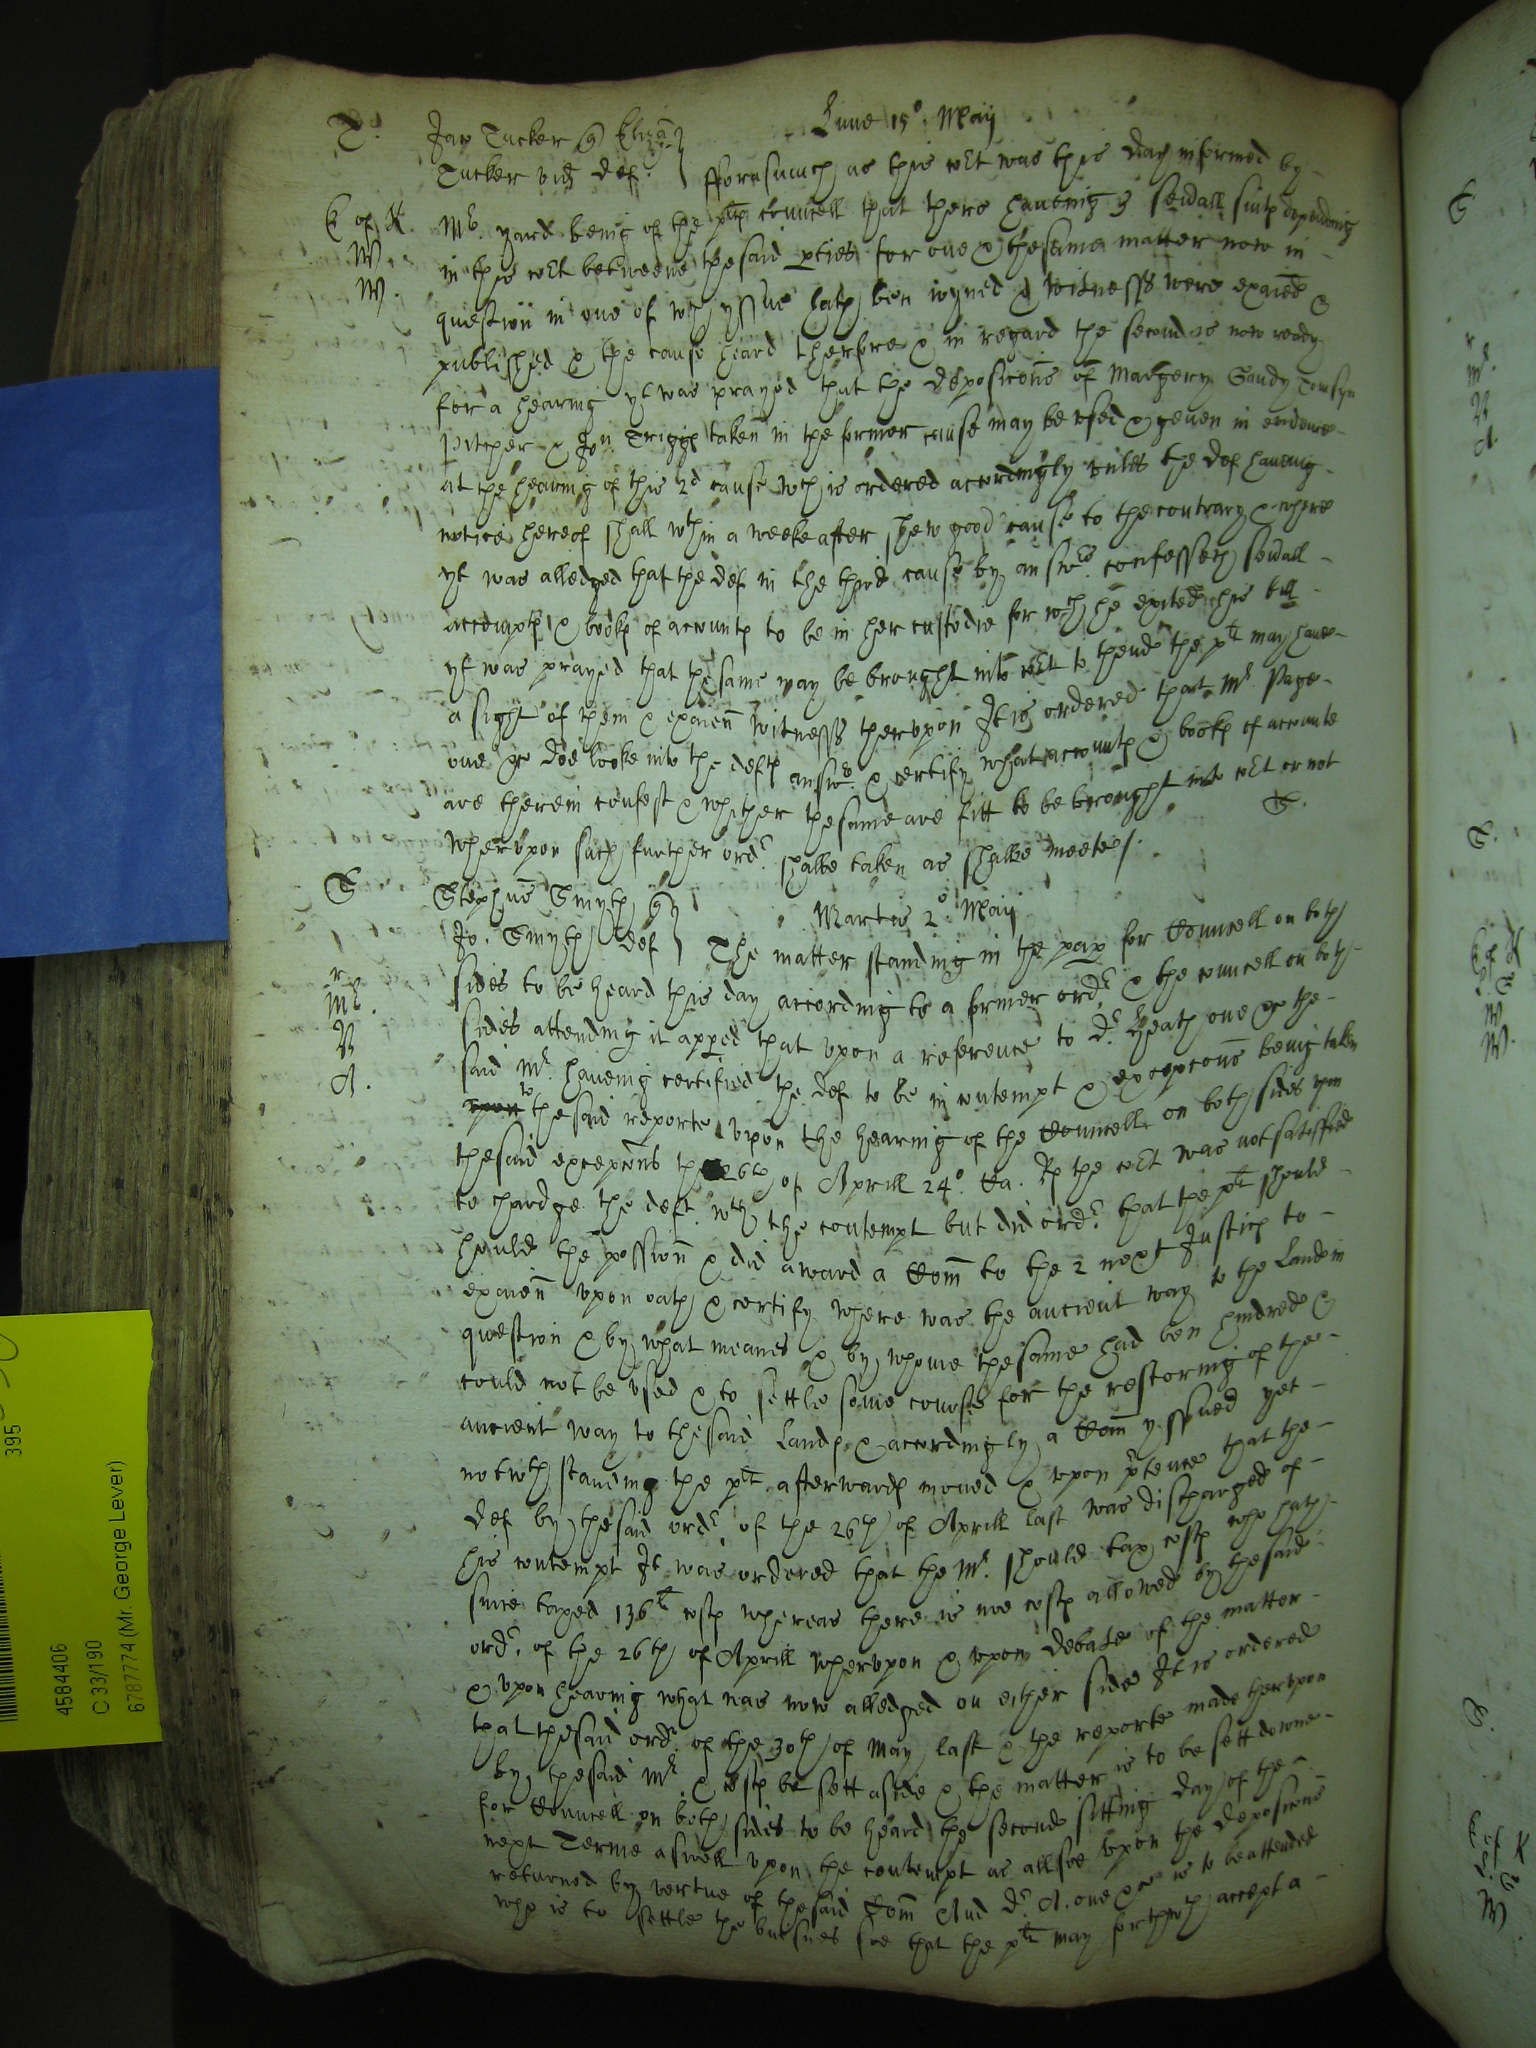 T. Jan Tucker q Eliza
Tucker vid def. Lune 15° Maij
fforasmuch as this cot was this day informed by
E of K Mr. yard being of the plts councell that there haueing 3 seuall suits depending
W in this cot betweene thesaid pties for one & thesame matter now in
W. question in one of wch yssue hath ben ioyned & witnesses were exaied &
published & the cause heard therfore & in regard the second is now ready
for a hearing yt was prayed that the deposicons of Margery Gaudy
Pitcher & Jon Triggs taken in the former cause may be vsed & geuen in euidence
at the hearing of this 2d cause wch is ordered accordingly vnles the def haueing
notice hereof shall wthin a weeke after shew good cause to the contrary & where
yt was alledged that the def in the third cause by answr. confesseth seuall
accompts & books of accounts to be in her custodie for wch he exited his bill
yt was prayed that the same may be brought into cot to thende the plt may haue
a sight of them & exaien witnesses thervpon It is ordered that Mr. Page
one &c doe looke into the defts answr. & certify what accounts & books of accounte
are therein confest & whither thesame are fitt to be brought into cot or not
whervpon such further ordr. shalbe taken as shalbe meete/. T.
S Stephus Smyth q
Jo. Smyth def Martis 2° Maij
The matter standing in the pap for Councell on both
r sides to be heard this day according to a former ordr. & the councell on both
Mr. sides attending it apped that vpon a reference to Dr. Heath one &c the
N said Mr. haueing certified the def to be in contempt & excepcons being taken
A. vpon to thesaid reporte vpon the hearing of the Councell on both sides vpon
thesaid excepcons the 26th of Aprill 24°. Ca. Rs the cot was not satisfied
to chardge the deft. wth the contempt but did ordr. that the plt should
hould the possion & did award a Com to the 2 next Justics to
exaien vpon oath & certify where was the ancient way to the Land in
question & by what meanes & by whome thesame had ben hindred &
could not be vsed & to settle some course for the restoring of the
ancient way to thesaid Lands & accordingly a Com yssued yet
notwthstanding the plt afterwards moued & vpon ptence that the
def by thesaid ordr. of the 26th of Aprill last was discharged of
his contempt It was ordered that the Mr. should tax costs who hath
since taxed 136lt costs whereas there is noe costs allowed by thesaid
ordr. of the 26th of Aprill whervpon & vpon debate of the matter
& vpon hearing what was now alledged on either side It is ordered
that thesaid ordr. of the 30th of May last & the reporte made thervpon
by thesaid Mr. & costs be sett aside & the matter is to be sett downe
for Councell on both sides to be heard the seconde sitting day of the
next Terme aswell vpon the contempt as allsoe vpon the deposicons
returned by vertue of thesaid Com And Dr. A. one &c is to be attended
who is to settle the busines soe that the plt may forthwth accept a
4584406
C 33/190
6787774 (Mr. George Lever)
395